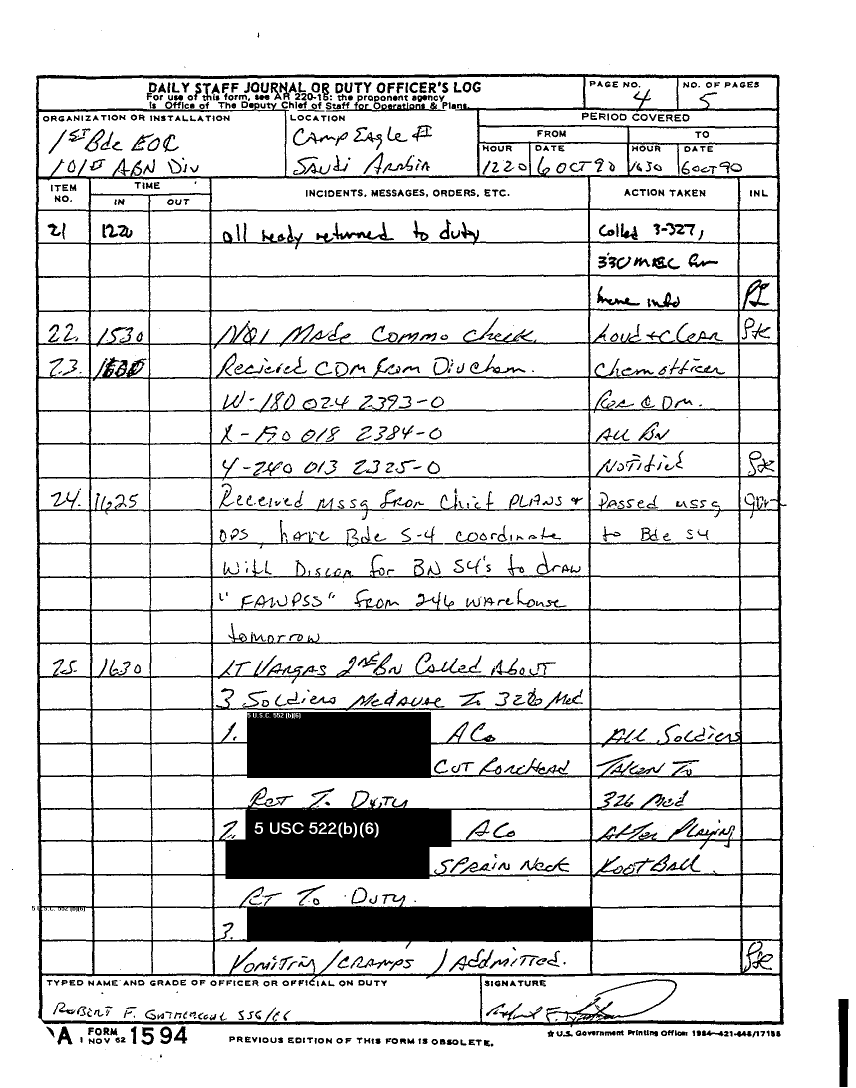 DAILY STAFF JOURNAL OR DUTY OFFICER'S LOG
For use of this form, see AR 220-15; the proponent agency
is Office of The Deputy Chief of Staff for Operations & Plans.
PAGE NO.
4
NO. OF PAGES
5
ORGANIZATION OR INSTALLATION
1st Bde EOC
101st ABN Div
LOCATION
Camp Eagle II
Saudi Arabia
PERIOD COVERED
FROM
TO
HOUR DATE HOUR DATE
1220 6 OCT 90 1630 6 OCT 90
ITEM NO.
TIME
IN OUT
INCIDENTS, MESSAGES, ORDERS, ETC.
ACTION TAKEN
INL
21 1220 all ready returned to duty Called 3-327,
more info
22. 1530 Made Commo Check. Loud + Clear
23. Recieved CDM From Div Chem. Chem officer
W-180 024 2393-0 CDM.
X-190 018 2384-0 All BN
Y-240 013 2325-0 Notified
24. 1625 Received mssg from Chief PLANS + Passed mssg
OPS, have Bde S-4 coordinate to Bde S4
With Discom for BN S4's to draw
"FAWPSS" from 246 warehouse
tomorrow
25. 1630 LT Vargas 2nd BN Called About
3 Soldiers to 326 Med
5 U.S.C. 552 (b)(6)
1. A Co All Soldiers
Cut Forehead Taken To
Ret To Duty 326 Med
2. 5 USC 522(b)(6) A Co After Playing
Sprain Neck Foot Ball.
RT To Duty.
5 U.S.C. 552 (b)(6)
3.
Vomiting/CRAMPS / Addmitted.
TYPED NAME AND GRADE OF OFFICER OR OFFICIAL ON DUTY
Robert F.
SIGNATURE
DA FORM 1 NOV 62 1594
PREVIOUS EDITION OF THIS FORM IS OBSOLETE.
☆ U.S. Government Printing Office: 1984-421-646/17155